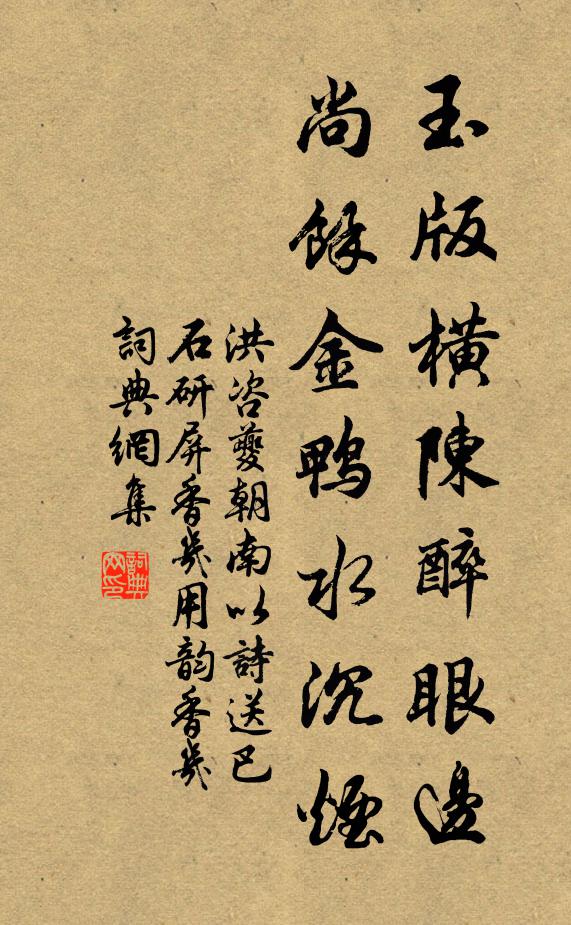 玉版橫陳醉眼邊
尚餘金鴨水沉煙
洪咨夔朝南以詩送巴
石研屏香幾用韵香幾
詞典網集
詞典
网印